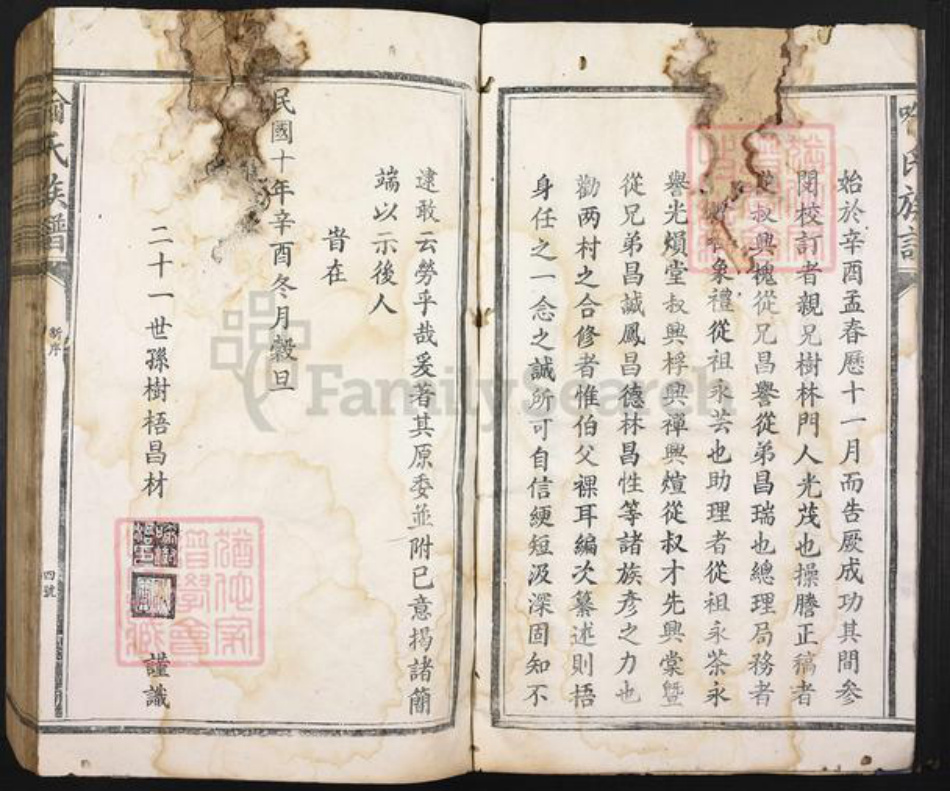 始於辛酉孟春歷十一月而告厥成功其間參
閱校訂者親兄樹林門人光茂也操謄正稿者
從叔興槐從兄昌譽從弟昌瑞也總理局務者
象禮從祖永芸也助理者從祖永茶永
譽光熉堂叔興桴興禪興煊從叔才先興棠暨
從兄弟昌誠鳳昌德林昌性等諸族彥之力也
勸两村之合修者惟伯父裸耳編次纂述則梧
身任之一念之誠所可自信綆短汲深固知不
逮敢云勞乎哉爰著其原委並附已意揭諸簡
端以示後人
旹在
民國十年辛酉冬月穀旦
二十一世孫樹梧昌材
謹識
氏族譜
新序
四號
氏族
FamilySearch